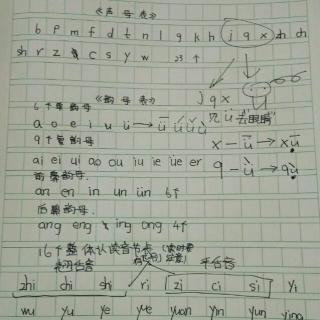 《声母表》
b p m f d t n l g k h j q x zh ch
sh r z c s y w 23个
《韵母表》
j q x
6个单韵母
见ü去"眼睛"
a o e i u ü → ǖ ǘ ǚ ǜ
x — ǖ → xū
9个复韵母
ai ei ui ao ou iu ie üe er
q — ǜ → qù
前鼻韵母.
an en in un ün 6个
后鼻韵母.
ang eng ing ong 4个
16个整体认读音节
平舌音
zhi chi shi ri zi ci si yi
wu yu ye yue yuan yin yun ying